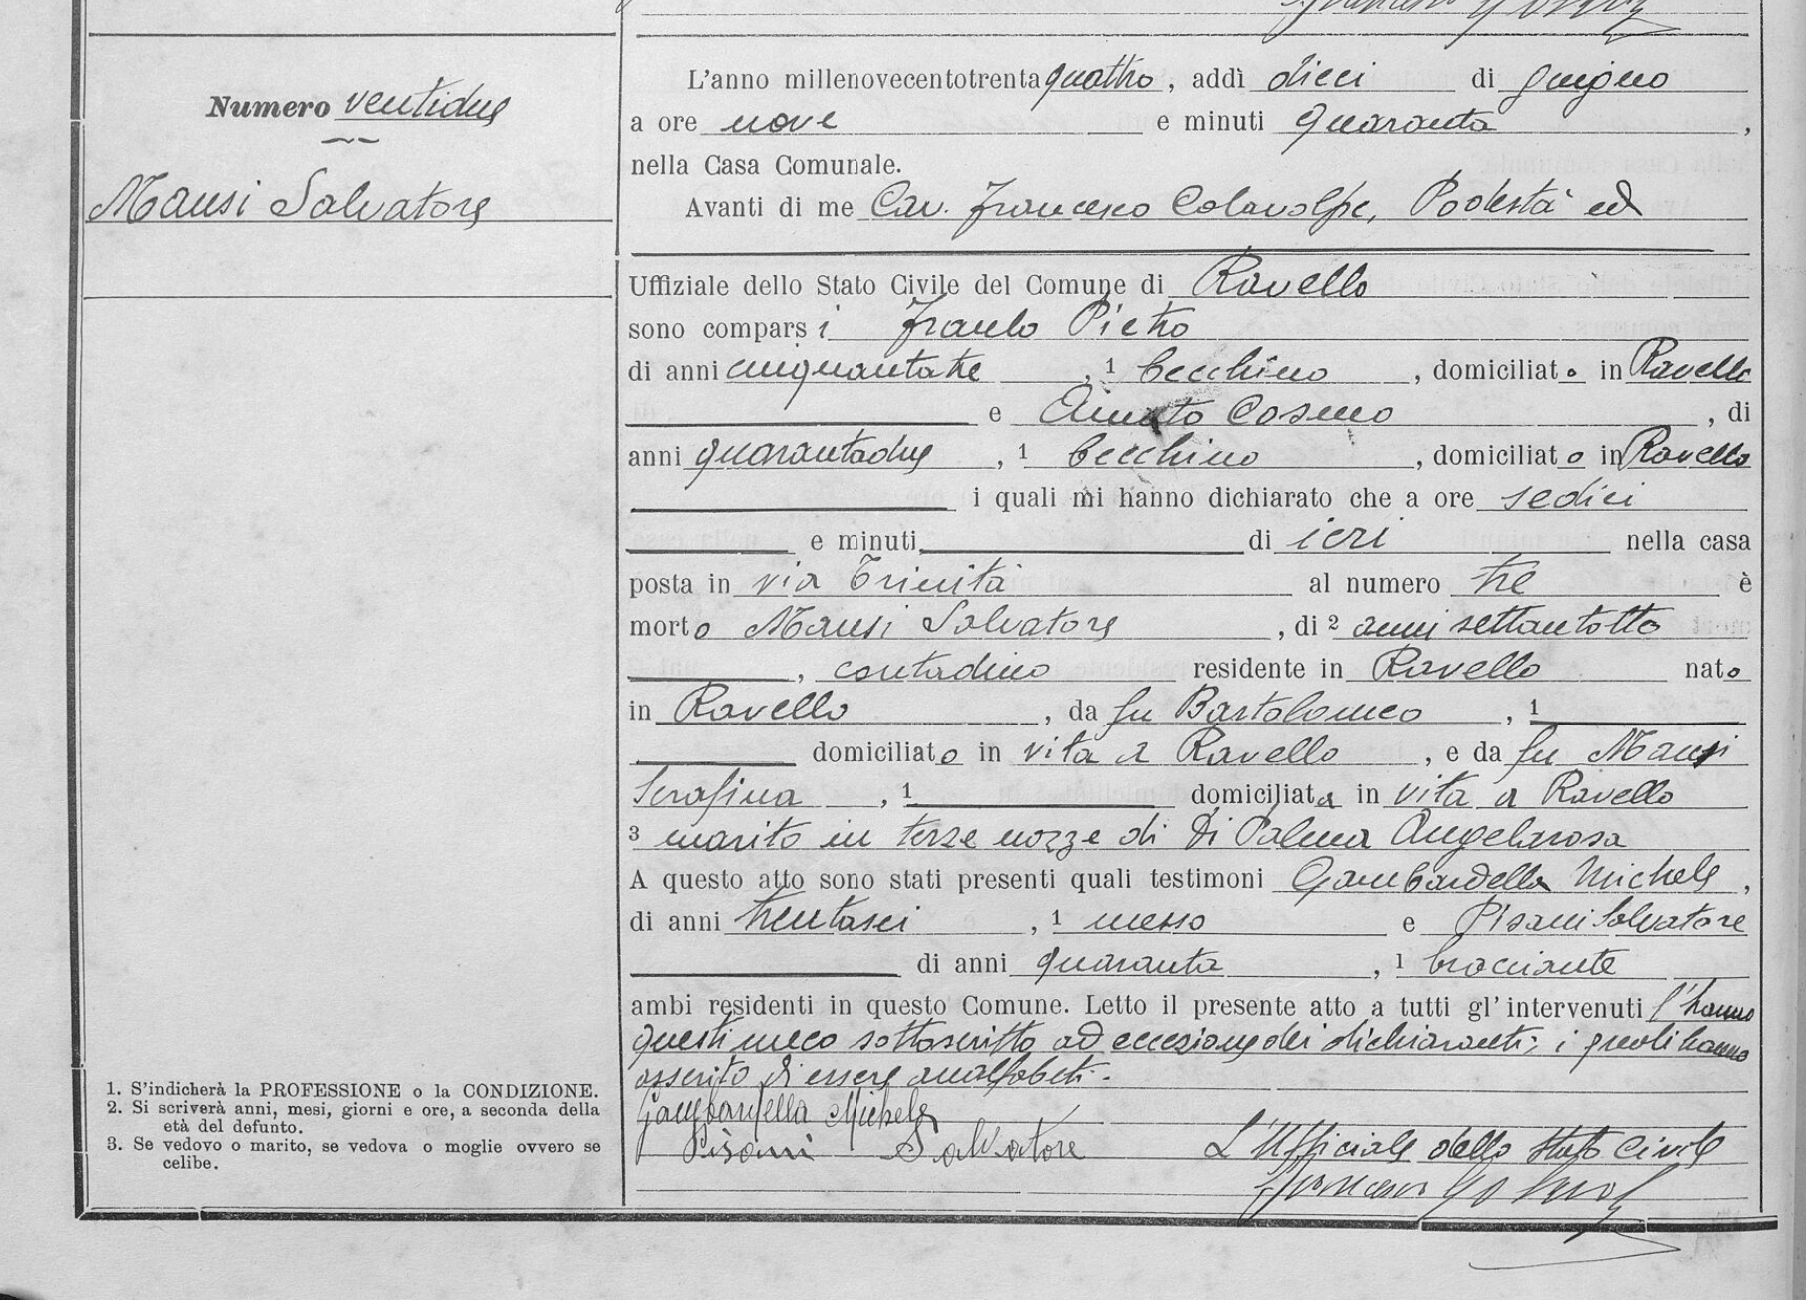 Numero ventidue
Mansi Salvatore
L'anno millenovecentotrentaquattro, addì dieci di giugno
a ore nove e minuti quaranta,
nella Casa Comunale.
Avanti di me Cav. Francesco Colavolpe, Podestà ed
Uffiziale dello Stato Civile del Comune di Ravello
sono comparsi Pietro
di anni cinquantatre, 1 becchino, domiciliato in Ravello
e Amato Cosmo, di
anni quarantadue, 1 becchino, domiciliato in Ravello
i quali mi hanno dichiarato che a ore sedici
e minuti di ieri nella casa
posta in via Trinità al numero tre è
morto Mansi Salvatore, di 2 anni settantotto
, contadino residente in Ravello nato
in Ravello, da fu Bartolomeo, 1
domiciliato in vita a Ravello, e da fu Mansi
Serafina, 1 domiciliata in vita a Ravello
3 marito in terze nozze di Di Palma Angelarosa
A questo atto sono stati presenti quali testimoni Gambardella Michele,
di anni trentasei, 1 messo e Pisani Salvatore
di anni quaranta, 1 bracciante
ambi residenti in questo Comune. Letto il presente atto a tutti gl'intervenuti l'hanno
questi meco sottoscritto ad eccezione dei dichiaranti, i quali hanno
asserito di essere analfabeti.
Gambardella Michele
Pisani Salvatore L'Ufficiale dello Stato Civile
1. S'indicherà la PROFESSIONE o la CONDIZIONE.
2. Si scriverà anni, mesi, giorni e ore, a seconda della
età del defunto.
3. Se vedovo o marito, se vedova o moglie ovvero se
celibe.